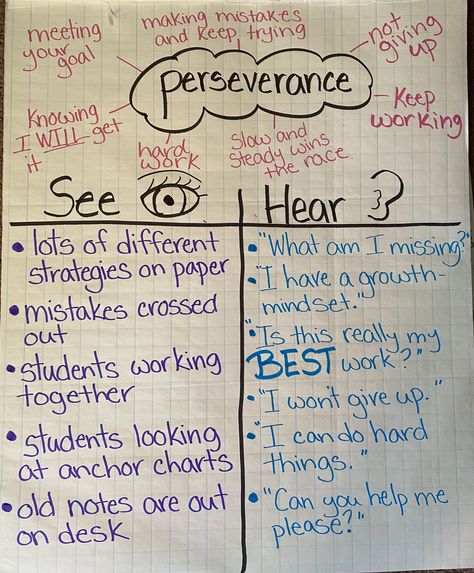 meeting
your
goal
making mistakes
and keep trying
not
giving
up
perseverance
Knowing
I WILL get
it
hard
work
Slow and
steady wins
the race
Keep
working
See
Hear
• lots of different
strategies on paper
• mistakes crossed
out
• students working
together
• students looking
at anchor charts
• old notes are out
on desk
• "What am I missing?"
• "I have a growth-
mindset."
• "Is this really my
BEST work?"
• "I won't give up."
• "I can do hard
things."
• "Can you help me
please?"